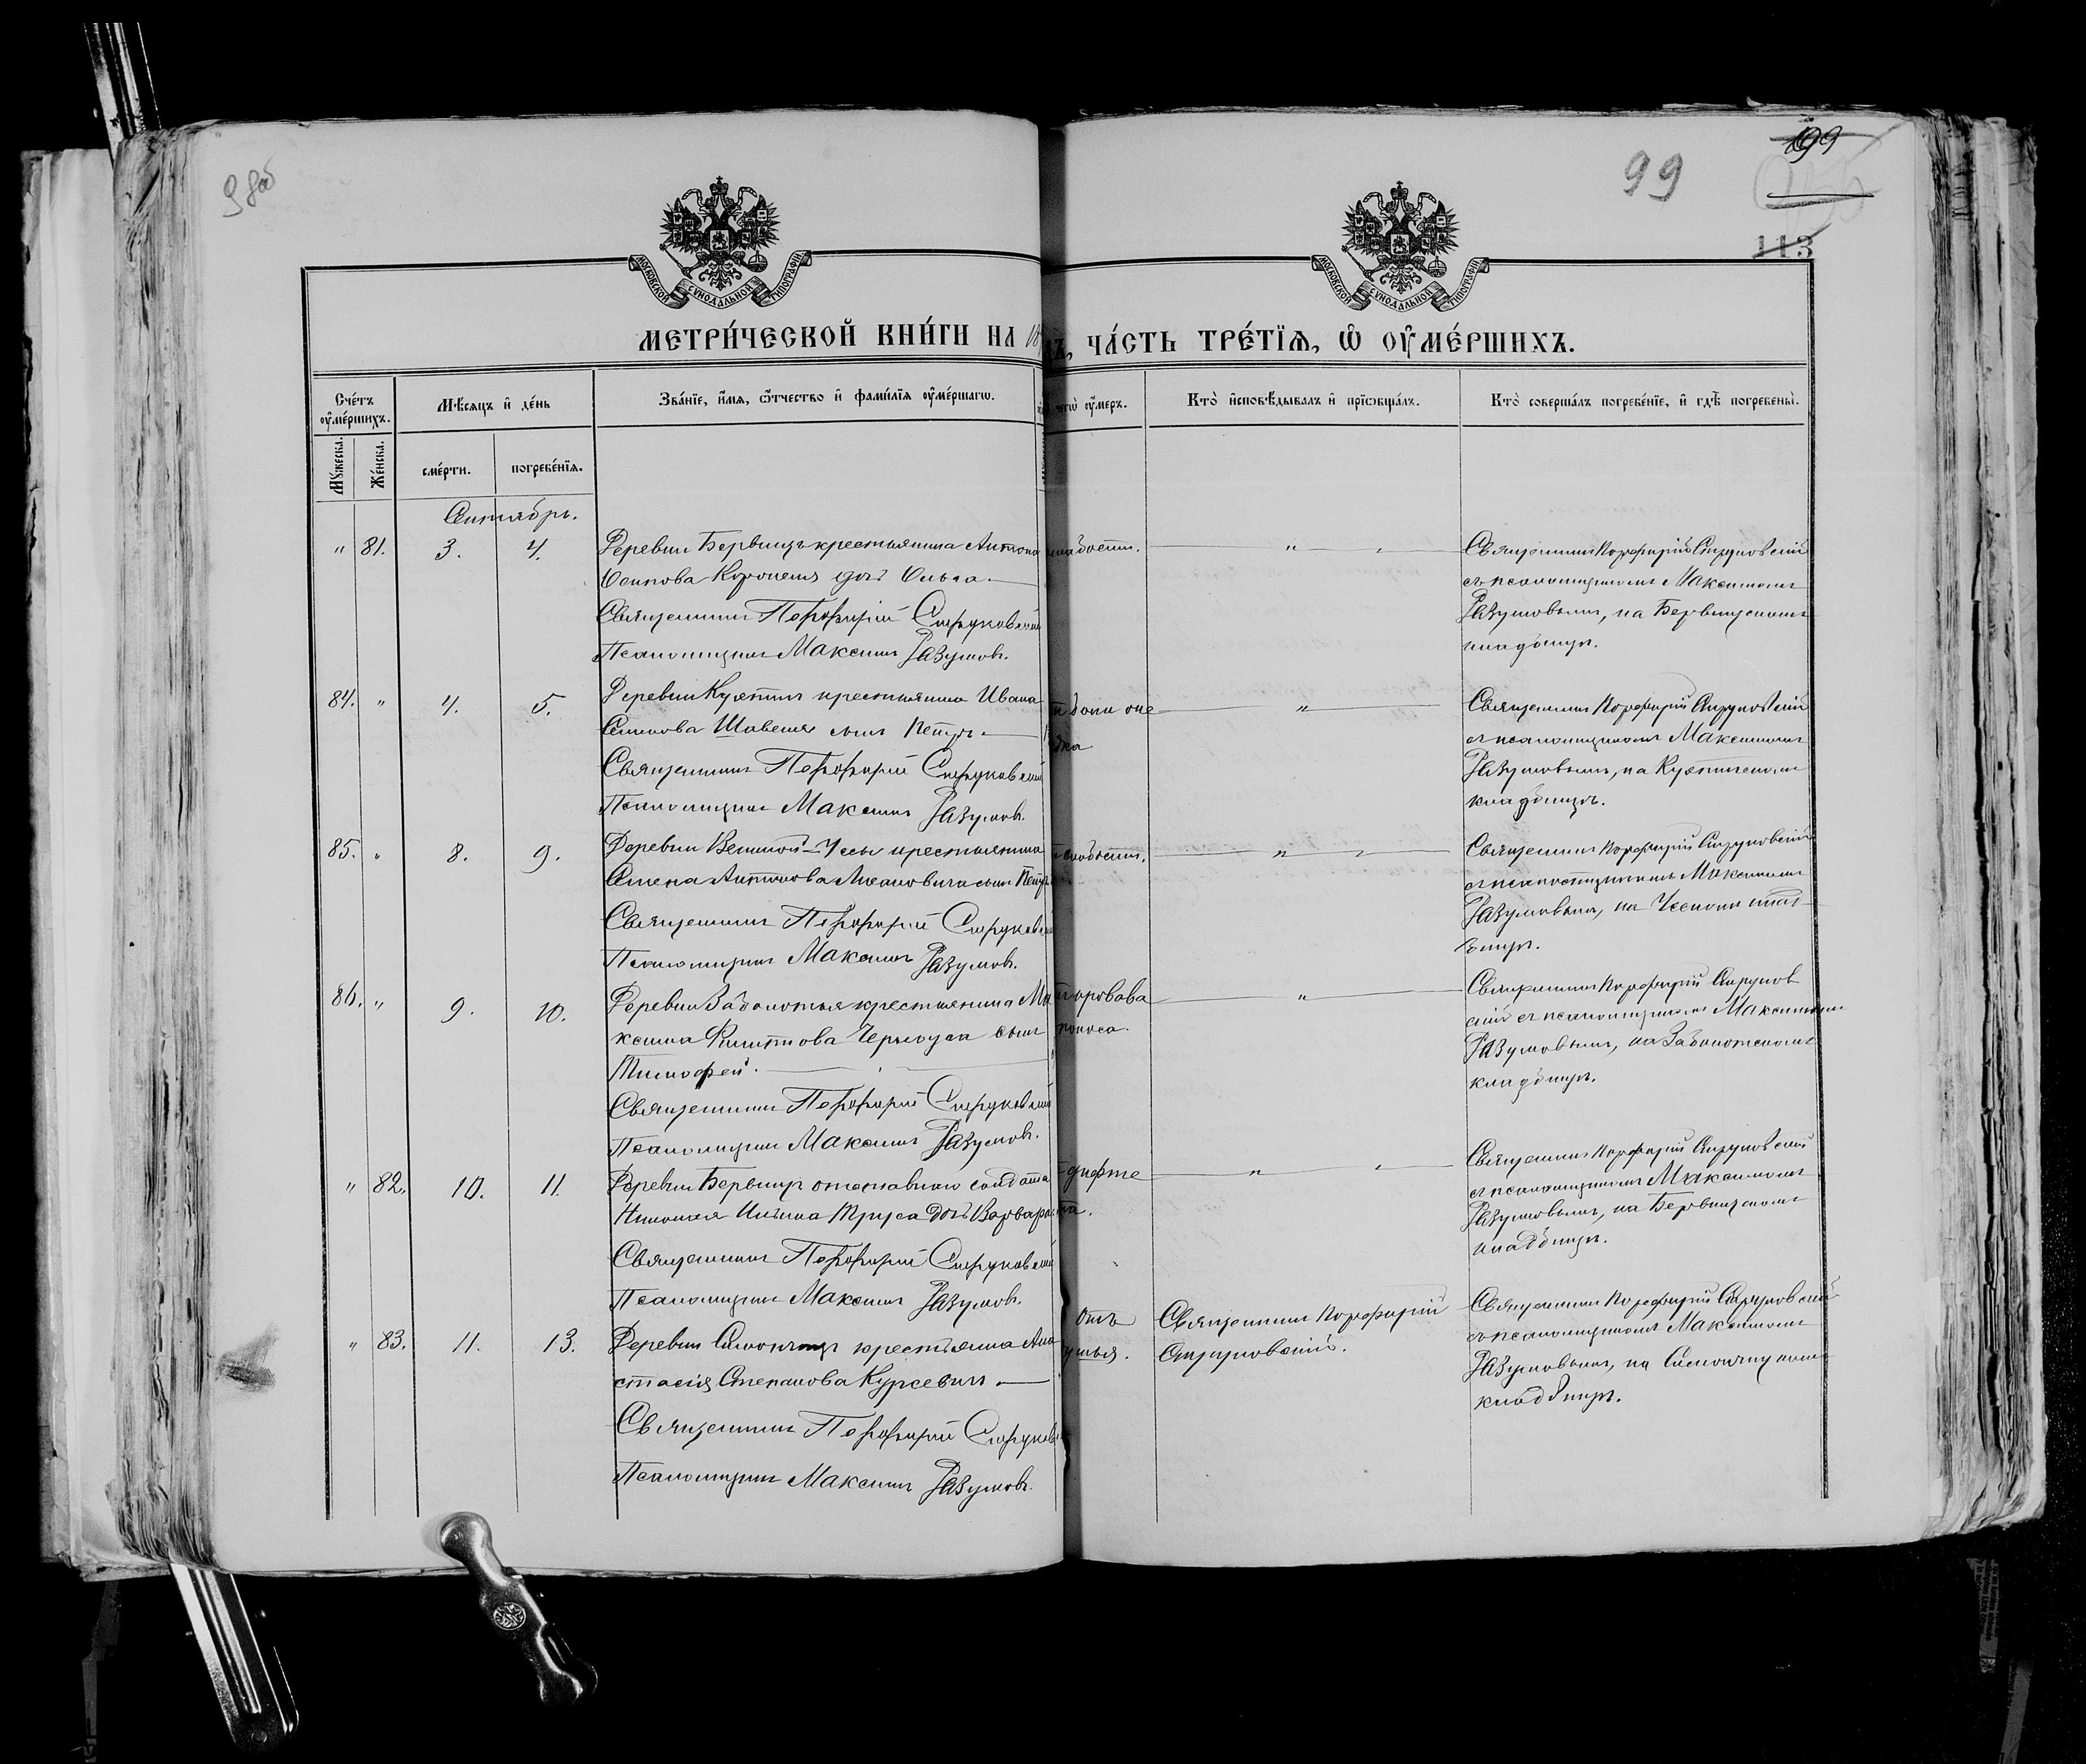 98об
99
199
113
МОСКОВСКОЙ СѴНОДАЛЬНОЙ ТИПОГРАФІИ
МОСКОВСКОЙ СѴНОДАЛЬНОЙ ТИПОГРАФІИ
МЕТРИ́ЧЕСКОЙ КНИ́ГИ НА 18
Ъ, ЧА́СТЬ ТРЕ́ТЇѦ, Ѡ҆ ОУ҆МЕ́РШИХЪ.
Сче́тъ оу҆ме́ршихъ.
Мѣ́сяцъ и҆ де́нь
Зва́нїе, и҆́мя, ѻ҆́тчество и҆ фами́лїя оу҆ме́ршагѡ.
чегѡ̀ оу҆́меръ.
Кто̀ и҆сповѣ́дывалъ и҆ прїѡбща́лъ.
Кто̀ соверша́лъ погребе́нїе, и҆ гдѣ̀ погребены̀.
Мꙋ́жеска.
Же́нска.
сме́рти.
погребе́нїя.
Сентябрь.
" 81. 3. 4.
Деревни Бервищъ крестьянина Антона
Осипова Короленя дочь Ольга.
Священникъ Порфирій Струковскій
Псаломщикъ Максимъ Разумовъ.
слабости.
"
Священникъ Порфирій Струковскій
съ псаломщикомъ Максимомъ
Разумовымъ, на Бервищскомъ
кладбищѣ.
84. " 4. 5.
Деревни крестьянина Ивана
Семенова сынъ Петръ.
Священникъ Порфирій Струковскій
Псаломщикъ Максимъ Разумовъ.
"
Священникъ Порфирій Струковскій
съ псаломщикомъ Максимомъ
Разумовымъ, на
кладбищѣ.
85. " 8. 9.
Деревни Великой-Уссы крестьянина
Семена Антонова сынъ Петръ
Священникъ Порфирій Струковскій
Псаломщикъ Максимъ Разумовъ.
слабости.
"
Священникъ Порфирій Струковскій
съ псаломщикомъ Максимомъ
Разумовымъ, на Усскомъ клад-
бищѣ.
86. " 9. 10.
Деревни Заболотья крестьянина Ма
ксима Филиппова сынъ
Тимофей.
Священникъ Порфирій Струковскій
Псаломщикъ Максимъ Разумовъ.
кроваваго
поноса.
"
Священникъ Порфирій Струков
скій съ псаломщикомъ Максимомъ
Разумовымъ, на Заболотскомъ
кладбищѣ.
" 82. 10. 11.
Деревни Бервищъ отставнаго солдата
Николая Ильина Труса дочь Варвара
Священникъ Порфирій Струковскій
Псаломщикъ Максимъ Разумовъ.
дифте
та.
"
Священникъ Порфирій Струковскій
съ псаломщикомъ Максимомъ
Разумовымъ, на Бервищскомъ
кладбищѣ.
" 83. 11. 13.
Деревни крестьянка Ана
стасія Степанова Курсевичъ.
Священникъ Порфирій Струковскій
Псаломщикъ Максимъ Разумовъ.
Отъ
Священникъ Порфирій
Струковскій.
Священникъ Порфирій Струковскій
съ псаломщикомъ Максимомъ
Разумовымъ, на
кладбищѣ.